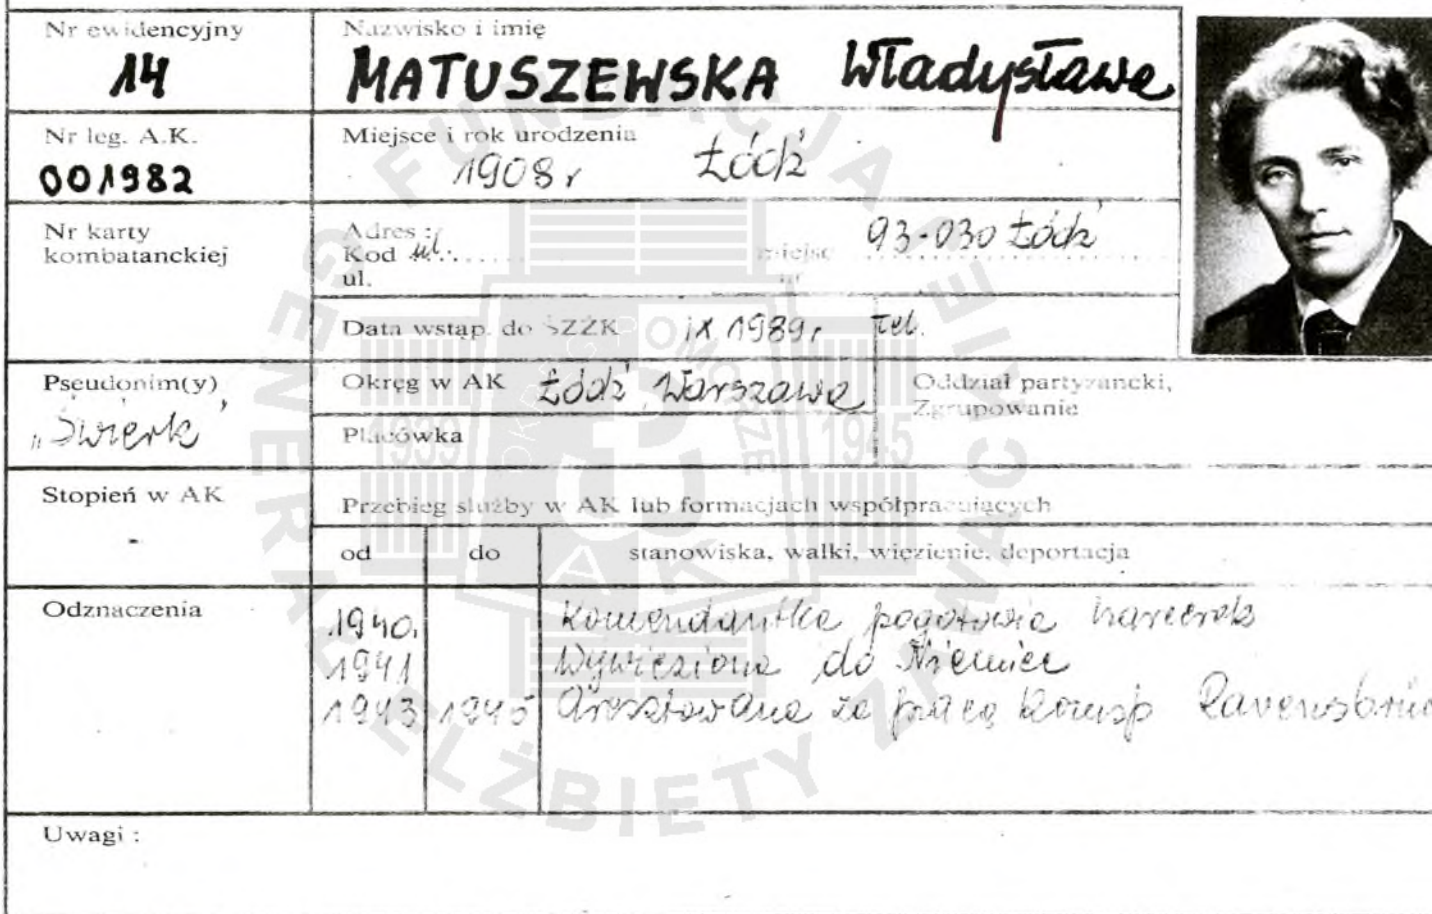 Nr ewidencyjny
14
Nazwisko i imię
MATUSZEWSKA Władysława
Nr leg. A.K.
001982
Miejsce i rok urodzenia
1908 r Łódź
Nr karty
kombatanckiej
Adres :
Kod ul. miejsc 93-030 Łódź
ul. nr
Data wstąp. do ŚZŻK IX 1989 r Tel.
Pseudonim(y)
„Świerk”
Okręg w AK Łódź, Warszawa
Placówka
Oddział partyzancki,
Zgrupowanie
Stopień w AK
-
Przebieg służby w AK lub formacjach współpracujących
od do stanowiska, walki, więzienie, deportacja
Odznaczenia
1940. Komendantka pogotowia harcerek
1941 Wywieziona do Niemiec
1943 1945 Aresztowana za pracę konsp Ravensbrüc
Uwagi :
FUNDACJA GENERAŁ ELŻBIETY ZAWACKIEJ
1939 1945
POMORZE
AK